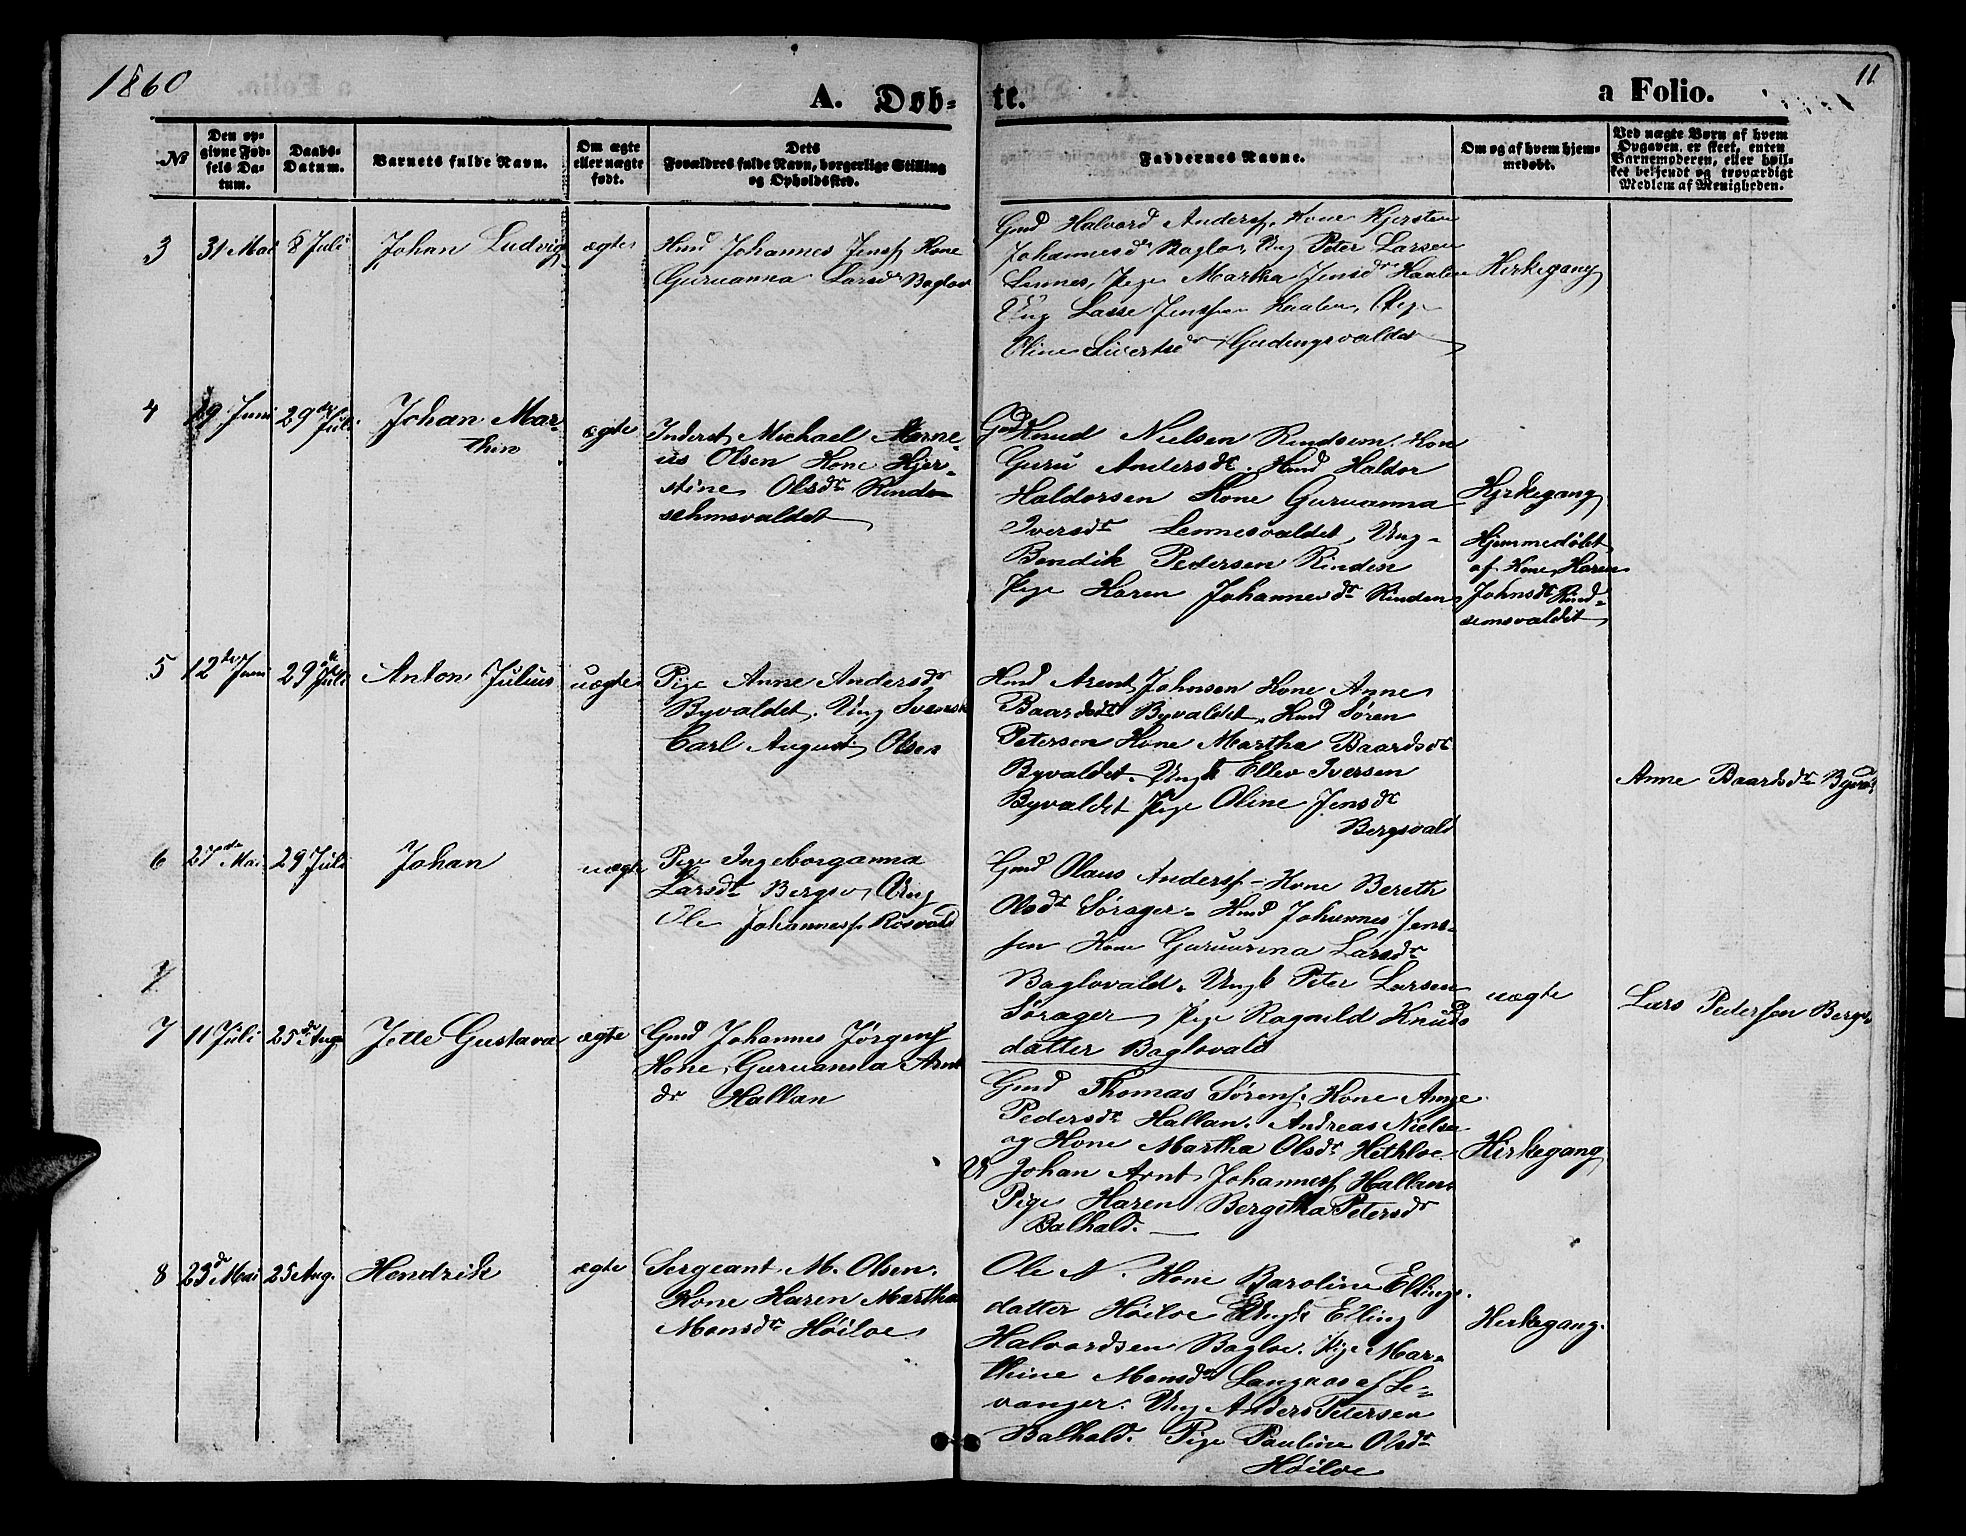 1860
11
A. Døb-
te.
a Folio.
№
Den op-
givne Fød-
sels Da-
tum.
Daabs-
Datum.
Barnets fulde Navn.
Om ægte
eller uægte
født.
Dets
Forældres fulde Navn, borgerlige Stilling
og Opholdssted.
Faddernes Navne.
Om og af hvem hjem-
medøbt.
Ved uægte Børn af hvem
Opgaven er skeet, enten
Barnemoderen, eller hvil-
ket bekjendt og troværdigt
Medlem af Menigheden.
3
31 Mai
8 Juli
Johan Ludvig
ægte
Hmd Johannes Jensf Kone
Guruanna Larsdr Baglov
Gmd Halvard Andersf. Kone Kjersten
Johannesdr Baglov, Ung Peter Larsen
Lennes, Pige Martha Jensdr Haalen
Ung Lasse Jensen Haalen, Pige
Oline Sivertsdr Gudingsvaldet
Kirkegang
4
19 Juni
29de Juli
Johan Mar-
thin
ægte
Inderst Michael Marne-
us Olsen Kone Kjer-
stine Olsdr Rind-
sehmsvaldet
Gmd Knud Nielsen Rindsem. Kone
Guru Andersdr. Hmd Haldor
Haldorsen Kone Guruanna
Iversdr Lennesvaldet, Ung-
Bendik Pedersen Rinden
Pige Karen Johannesdr Rinden
Kirkegang
Hjemmedøbt
af Kone Karen
Johnsdr Rind-
semsvaldet
5
12de Juni
29de Juli
Anton Julius
uægte
Pige Anne Andersdr
Byvaldet. Ung Svensk
Carl August Olsen
Hmd Arent Johnsen Kone Anne
Baardsdr Byvaldet. Hmd Søren
Petersen Kone Martha Baardsdr
Byvaldet. Ungk Ellev Iversen
Byvaldet Pige Oline Jensdr
Bergsvald
Anne Baardsdr
6
27de Mai
29 Juli
Johan
uægte
Pige Ingeborganna
Larsdr Bergsv, Ung
Ole Johannesf. Rosvald
Gmd Olaus Andersf- Kone Bereth
Olsdr Sørager. Hmd Johannes Jens-
sen Kone Guruanna Larsdr
Baglovald. Ungk Peter Larsen
Sørager, Pige Ragnild Knuds
datter Baglovald
uægte
Lars Pedersen
7
7
11 Juli
25de Aug
Jette Gustava
ægte
Gmd Johannes Jørgensf
Kone Guruanna Arnt
dr Hallan
Gmd Thomas Sørensf. Kone Anne
Pedersdr Hallan. Andreas Nielsen
og Kone Martha Olsdr Hethloe
U Johan Arnt Johannesf Hallan
Pige Karen Bergitha Petersdr
Balhald.
Kirkegang
8
23de Mai
25 Aug.
Hendrik
ægte
Sergeant M. Olsen.
Kone Karen Martha
Monsdr Høiloe
Ole N. Kone Baroline Ellings-
datter Høiloe Ungk Elling
Halvordsen Bagloe. Pige Mar-
thine Monsdr Langaas af Le-
vanger. Ung Anders Petersen
Balhald. Pige Pauline Olsdr
Høiloe
Kirkegang.